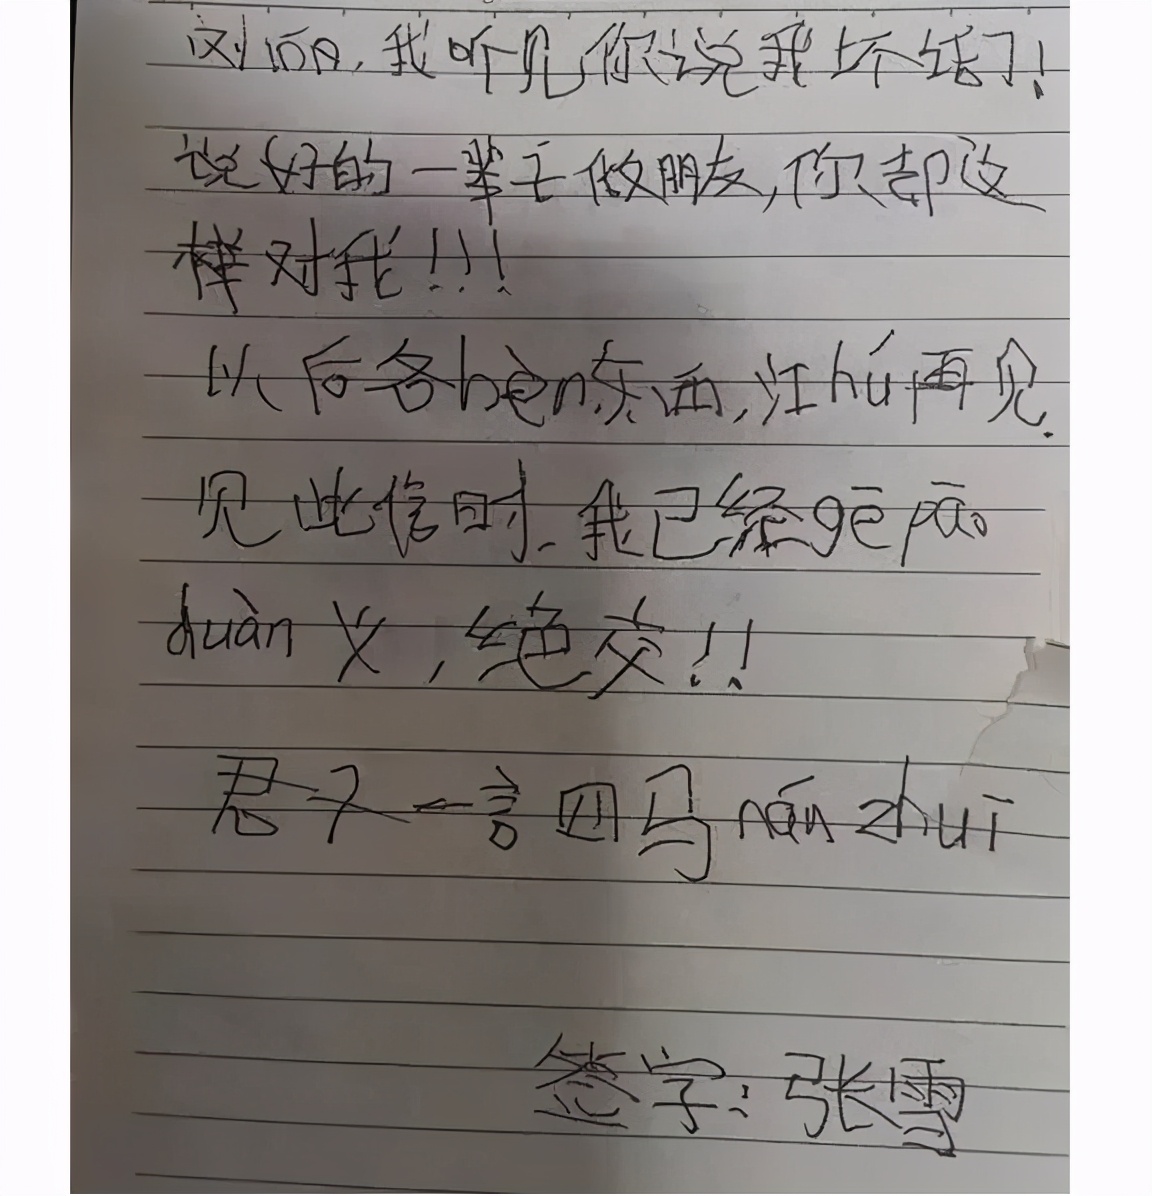 刘, 我听见你说我坏话了!
说好的一辈子做朋友,你却这
样对我!!!
以后各bèn东西,江hú再见.
见此信时.我已经gē pāo
duàn义,绝交!!
君子一言四马nán zhuī
签字:张雪